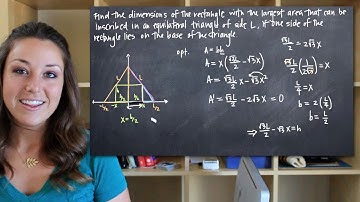 Find the dimensions of the rectangle with the largest area that can be
inscribed in an equilateral triangle of side L, if one side of the
rectangle lies on the base of the triangle.
opt.
A = bh
A = x(√3L/2 - √3x)
A = √3L/2 x - √3x²
A' = √3L/2 - 2√3x = 0
⇒ √3L/2 - √3x = h
√3L/2 = 2√3x
√3L/2 (1/2√3) = x
L/4 = x
b = 2(L/4)
b = L/2
L
L
h
h
-L/2
L/2
x = b/2